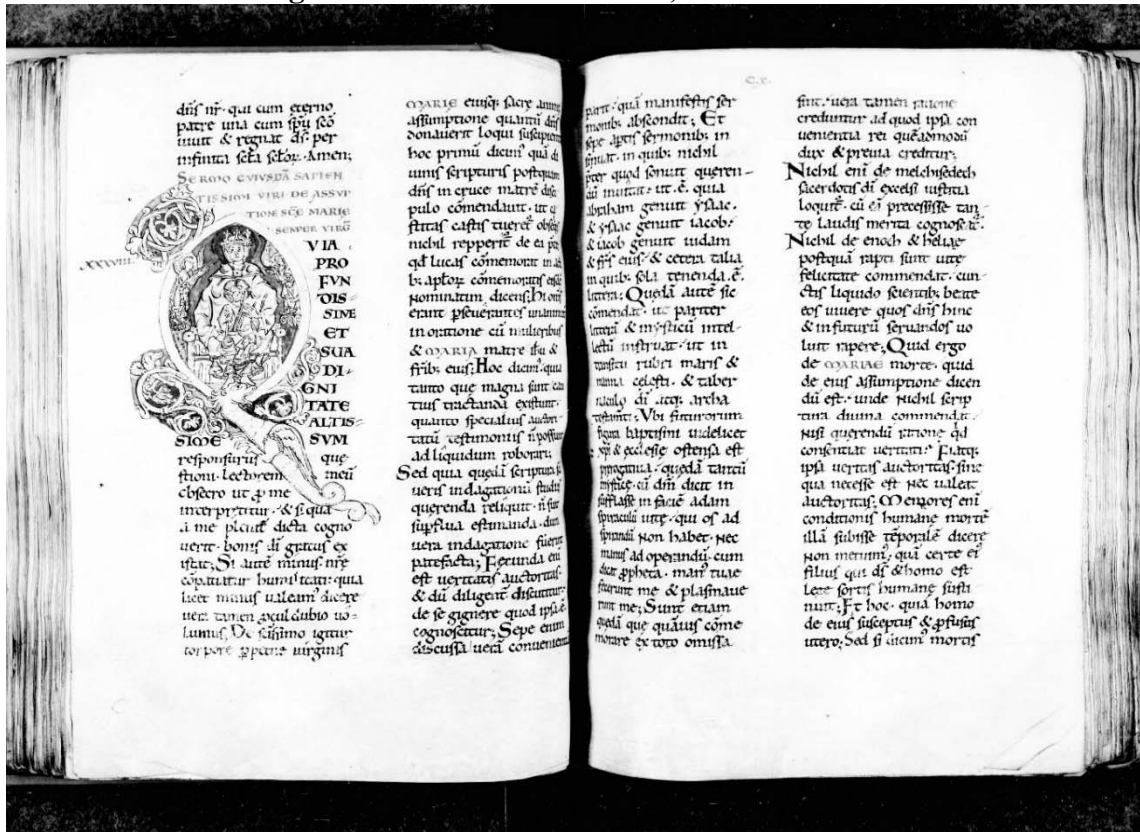 dn̄s nr̄· qui cum eterno
patre una cum sp̄u sc̄o
uiuit & regnat d̄s· per
infinita sc̄la sc̄lor̄· Amen;
SERMO CVIVSDĀ SAPIEN
TISSIMI VIRI DE ASSVP
TIONE SC̄E MARIE
SEMPER VIRG̅
XXXVIII·
Q
VIA
PRO
FVN
DIS=
SIME
ET
SUA
DI=
GNI
TATE
ALTIS=
SIME SVM
responsurus que
stioni· Lectorem meū
obsecro ut p̱ me
interpretetur· & si qua
a me dicta cogno
uerit· bonis di gratus ex
istat; Si autē minus· nrē
humilitati· quia
licet minus ualeam' dicere
uera tamen ꝓcul dubio uo=
lumus; De igitur
corpore ꝑpetue uirginis
MARIE eiusq; sacre anime
assumptione quantū dn̄s
donauerit loqui
hoc primū dicim' quā di
uinis scripturis postquam
dn̄s in cruce matrē disc
pulo cōmendauit· ut
castis tueret'
nichil repperit' de ea
qd lucas cōmemorat in
b; aplor̄ cōmemorans
nominatim dicens; Hi om̄s
erant pseuerantes unanim
in oratione cū mulieribus
& MARIA matre ih̄u &
frib; eius; Hoc dicim' quia
tanto que magna sunt cau
tius tractanda existunt·
quanto specialius auctori
tatū testimoniis n̄ possunt
ad liquidum roborari;
Sed quia quędā scriptura
ueris indagationū studiis
querenda reliquit· n̄ sunt
supflua estimanda· dum
uera indagatione fuerint
patefacta; Fecunda eni
est ueritatis auctoritas·
& dū diligent' discutitur·
de se gignere quod ipsa ē·
cognoscitur; Sepe enim
discussa uerā
C.x.
parit· quā manifestis ser
monib; abscondit; Et
sepe aptis sermonib; in
sinuat· in quib; nichil
pter quod sonuit queren=
dū inuitat· ut· ē· quia
abraham genuit ysaac·
& ysaac genuit iacob·
& iacob genuit iudam
& frs̄ eius· & cetera talia
in quib; sola tenenda· ē·
littera; Quędā autē sic
comendat· ut pariter
litterā & mysticū intel-
lectū instruat· ut in
transitu rubri maris &
manna celesti· & taber
naculo di atq; archa
testamti; Vbi futurorum
figura baptismi uidelicet
xp̄i & ecclesię ostensa est
prerogatiua· quędā tantū
mystice· cū dn̄m dicit in
sufflasse in faciē adam
spiraculū uitę· qui os ad
spirandū non habet· nec
manus ad operandū· cum
dicat ꝓpheta· man' tuae
fecerunt me & plasmaue
runt me; Sunt etiam
quędā que quāuis cōme
morare ex toto omissa
sint· uera tamen ratione
creduntur· ad quod ipsa con
uenientia rei quēadmodū
dux & preuia creditur;
Nichil eni de melchisedech
sacerdotis di excelsi iustitia
loquitr̄· cū eā precessisse tan
te laudis merita cognoscatr̄·
Nichil de enoch & heliae
postquā rapti sunt uitę
felicitate commendat· cun
ctis liquido scientib; beate
eos uiuere quos dn̄s hinc
& in futurū seruandos uo
luit rapere; Quid ergo
de MARIAE morte· quid
de eius assumptione dicen
dū est· unde nichil scrip
tura diuina commendat·
nisi querendū ratione qd
consentiat ueritati· Fiatq;
ipsa ueritas auctoritas· sine
qua necesse est nec ualeat
auctoritas; Memores eni
conditionis humane mortē
illā subisse tēporalē dicere
non metuim'· quā certe ei'
filius qui d̄s & homo est
lege sortis humane susti
nuit; Et hoc· quia homo
de eius susceptus & ꝓfusus
utero; Sed si dicim' mortis